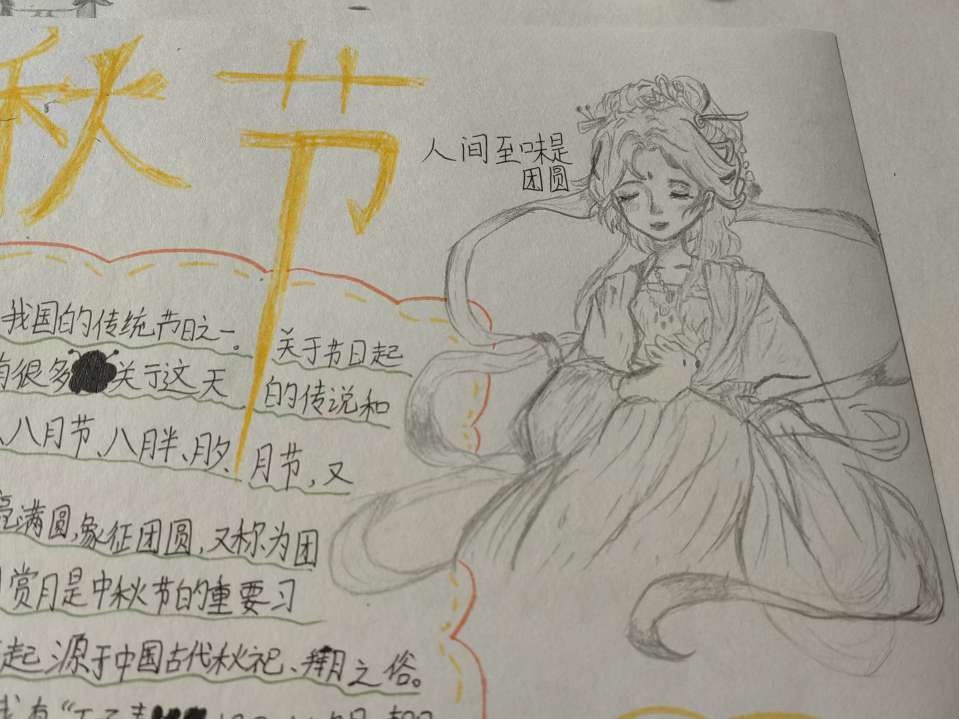 秋节
人间至味是
团圆
我国的传统节日之一。 关于节日起
有很多 关于这天 的传说和
、八月节、八月半、月夕、月节,又
亮满圆,象征团圆,又称为团
赏月是中秋节的重要习
起源于中国古代秋祀、拜月之俗。